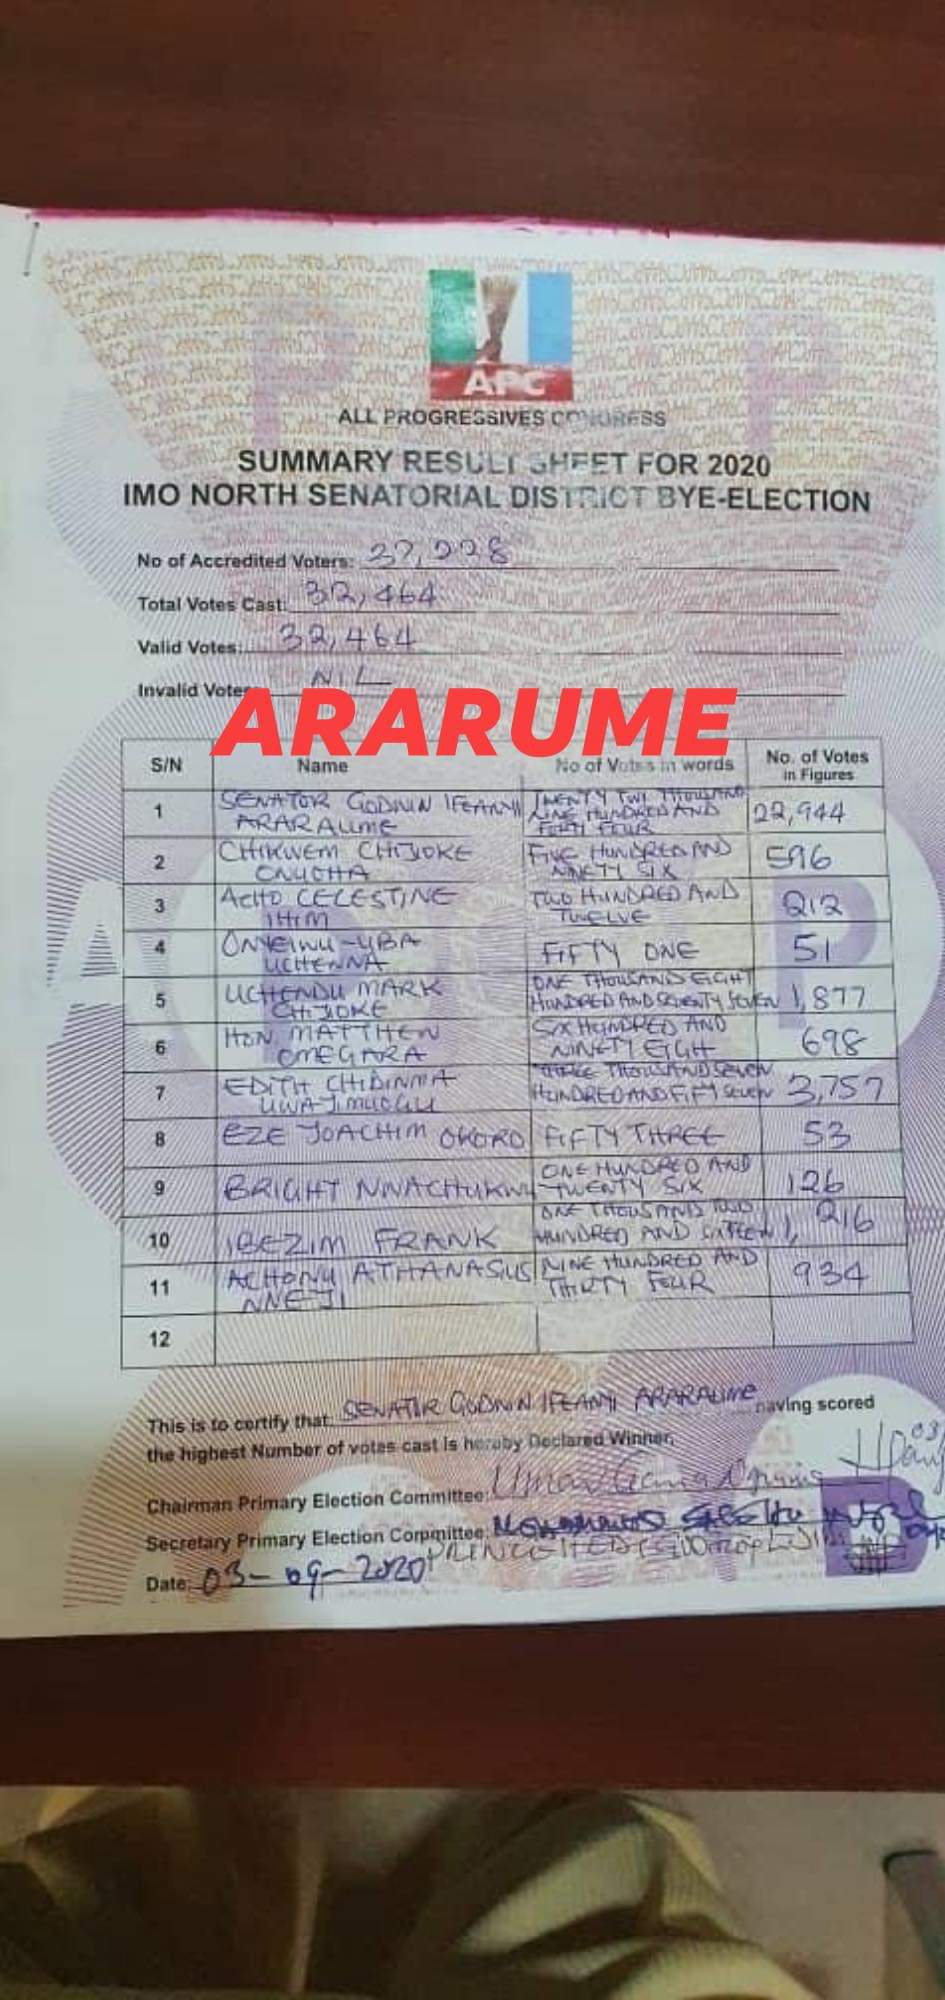 APC
ALL PROGRESSIVES CONGRESS
SUMMARY RESULT SHEET FOR 2020
IMO NORTH SENATORIAL DISTRICT BYE-ELECTION
No of Accredited Voters:
Total Votes Cast: 32,464
Valid Votes: 32,464
Invalid Votes NIL
ARARUME
S/N Name No of Votes in words No. of Votes in Figures
1 SENATOR GODWIN IFEANYI ARARAUME TWENTY TWO THOUSAND NINE HUNDRED AND FORTY FOUR 22,944
2 CHIKWEM CHIJIOKE ONUOHA FIVE HUNDRED AND NINETY SIX 596
3 ACHO CELESTINE IHIM TWO HUNDRED AND TWELVE 212
4 ONYEIWU-UBA UCHENNA FIFTY ONE 51
5 UCHENDU MARK CHIJIOKE ONE THOUSAND EIGHT HUNDRED AND SEVENTY SEVEN 1,877
6 HON MATTHEW OMEGARA SIX HUNDRED AND NINETY EIGH 698
7 EDITH CHIDINMA UWAJIMUOGU THREE THOUSAND SEVEN HUNDRED AND FIFTY SEVEN 3,757
8 EZE JOACHIM OKORO FIFTY THREE 53
9 BRIGHT NWACHUKWU ONE HUNDRED AND TWENTY SIX 126
10 IBEZIM FRANK ONE THOUSAND TWO HUNDRED AND SIXTEEN 1,216
11 ACHONU ATHANASIUS NNEJI NINE HUNDRED AND THIRTY FOUR 934
12
This is to certify that SENATOR GODWIN IFEANYI ARARAUME having scored
the highest Number of votes cast is hereby Declared Winner.
Chairman Primary Election Committee:
Secretary Primary Election Committee:
Date: 03-09-2020